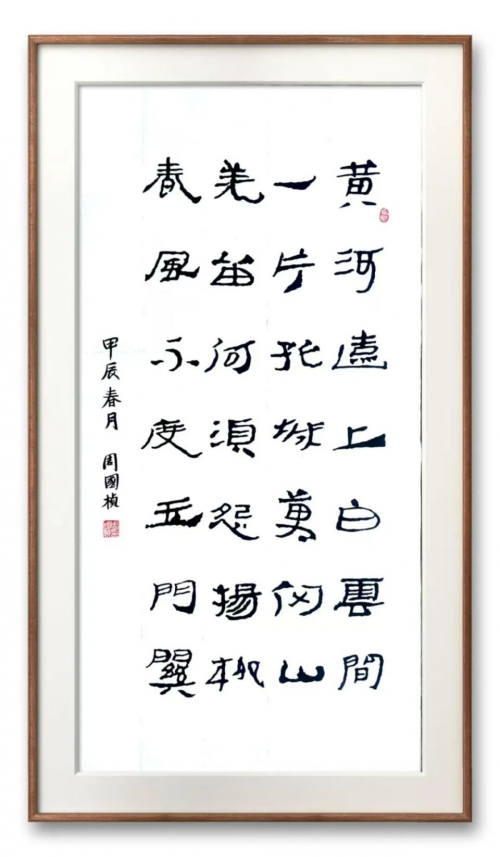 黃河遠上白雲間
一片孤城萬仞山
羌笛何須怨揚柳
春風不度玉門關
甲辰春月 周國楨